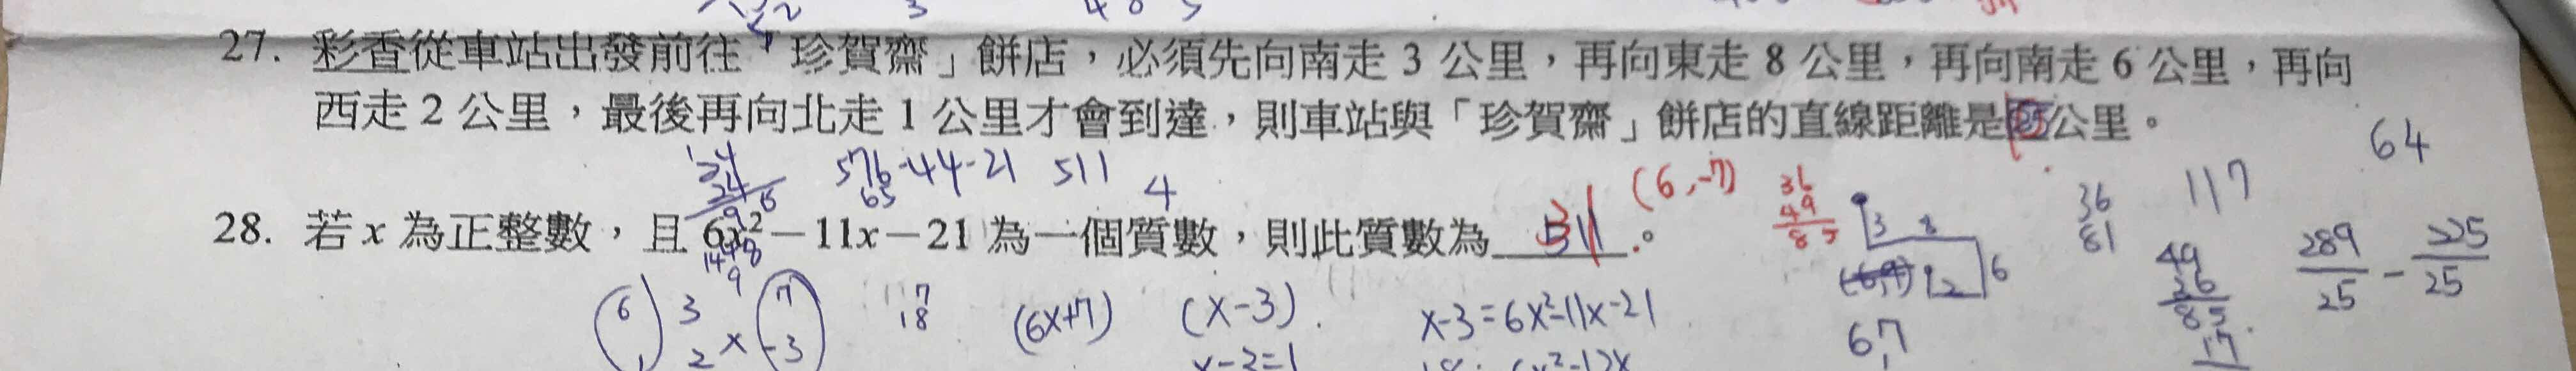 27. 彩香從車站出發前往「珍賀齋」餅店，必須先向南走 3 公里，再向東走 8 公里，再向南走 6 公里，再向
西走 2 公里，最後再向北走 1 公里才會到達，則車站與「珍賀齋」餅店的直線距離是 公里。
64
576-44-21 511
65
4
(6,-7)
36
49
85
36
81
117
28. 若 x 為正整數，且 6x²－11x－21 為一個質數，則此質數為 31 。
3 8
6
2
6,7
49
36
85
17
289/25 - 225/25
6 3 7
1 2 × -3
17
18
(6x+7) (x-3)
x-3=6x²-11x-21
x-3=1